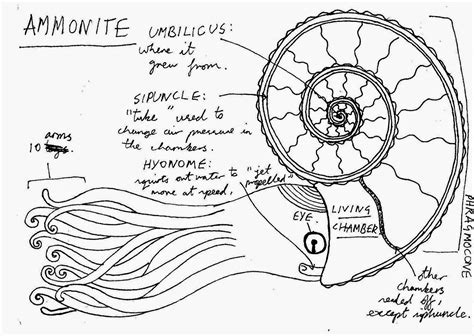 AMMONITE
UMBILICUS:
where it
grew from.
SIPUNCLE:
"tube" used to
change air pressure in
the chambers.
HYONOME:
squirts out water to
move at speed,
"jet
propelled"
arms
10
EYE.
LIVING
CHAMBER
PHRAGMOCONE
other
chambers
sealed off,
except siphuncle.